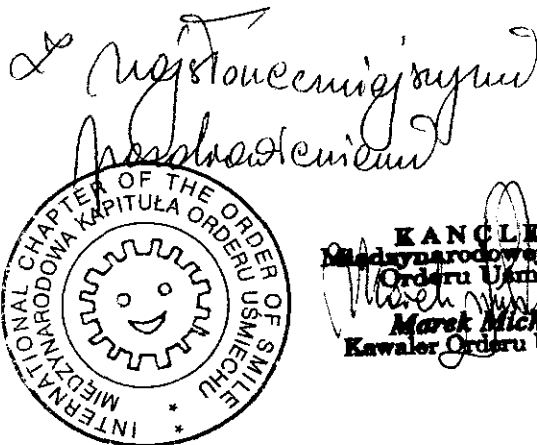 z najsłoneczniejszymi
pozdrowieniami
INTERNATIONAL CHAPTER OF THE ORDER OF SMILE
MIĘDZYNARODOWA KAPITUŁA ORDERU UŚMIECHU
* *
KANCLE
Międzynarodowe
Orderu Uśm
Marek Mich
Kawaler Orderu